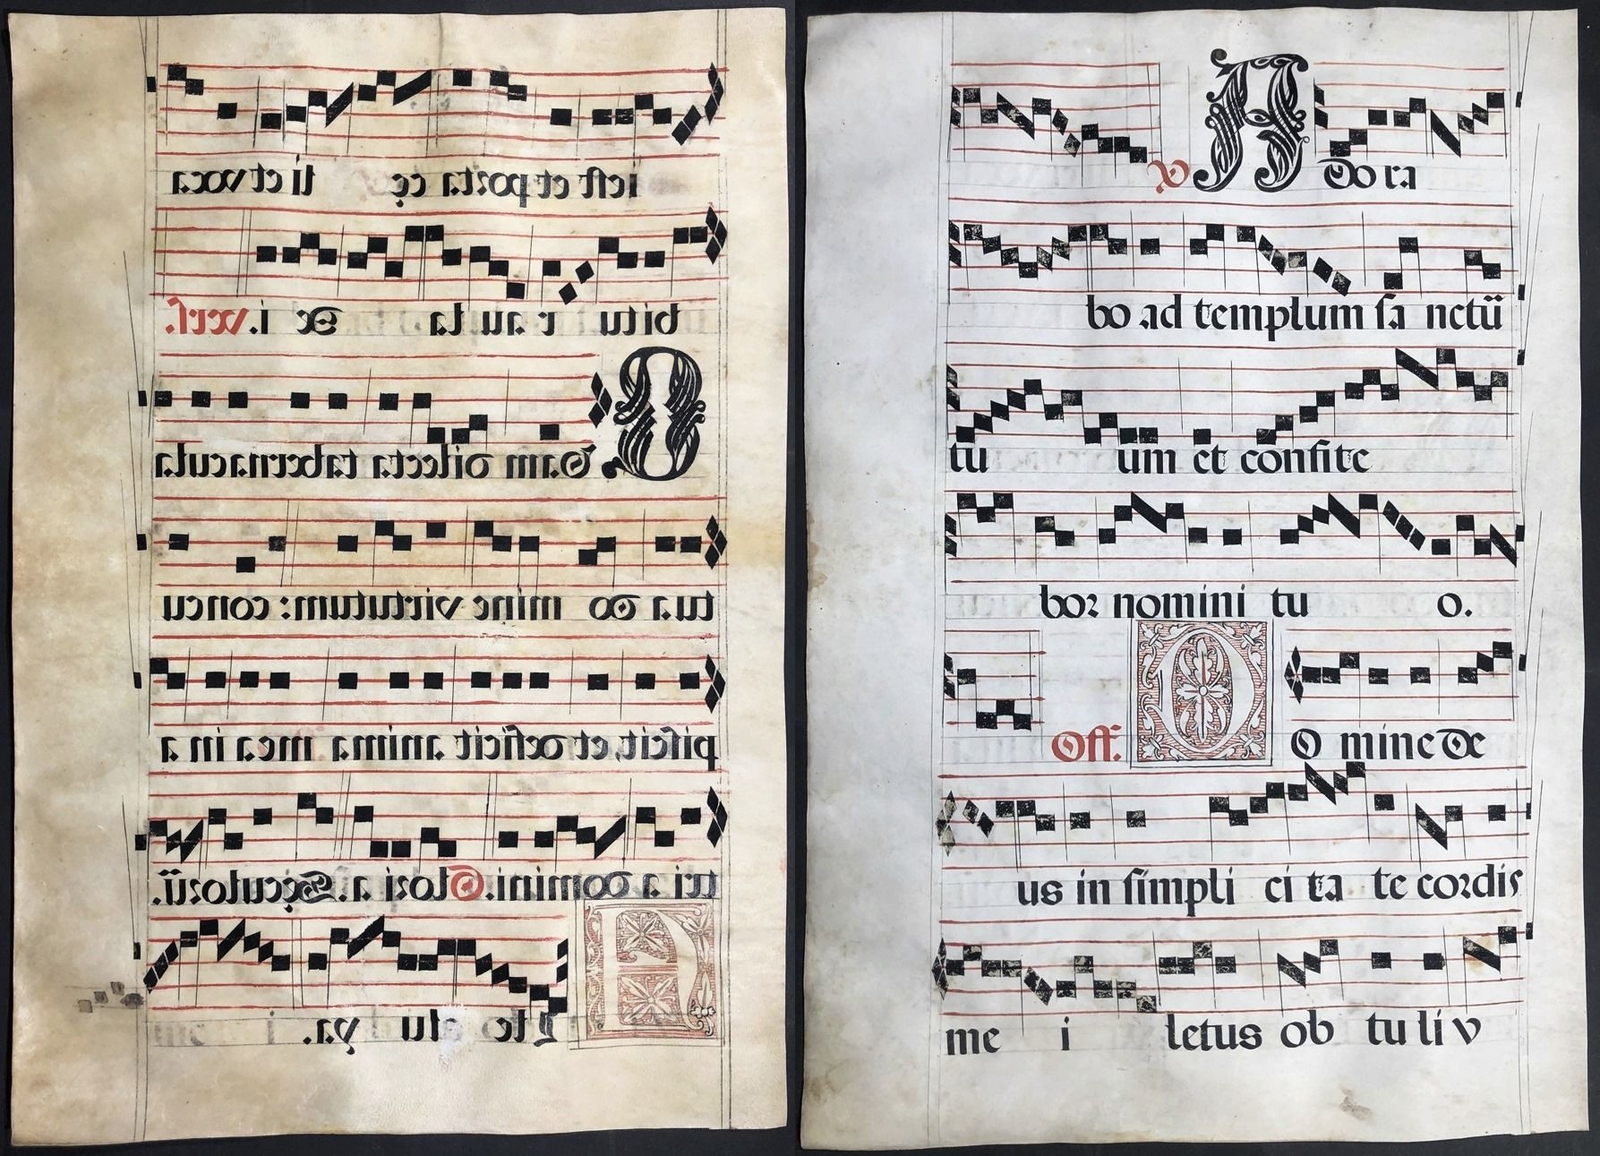 iest et porta cę li et voca
bitu r aula De i. vers.
Quam dilecta tabernacula
tua do mine virtutum: concu
piscit, et deficit anima mea in a
tri a domini. Glori a. Sęculorũ.
A Lle alu ya.
V Ado ra
bo ad templum sa nctũ
tu um et confite
bor nomini tu o.
Off. DO mine De
us in simpli ci ta te cordis
me i letus ob tu li v